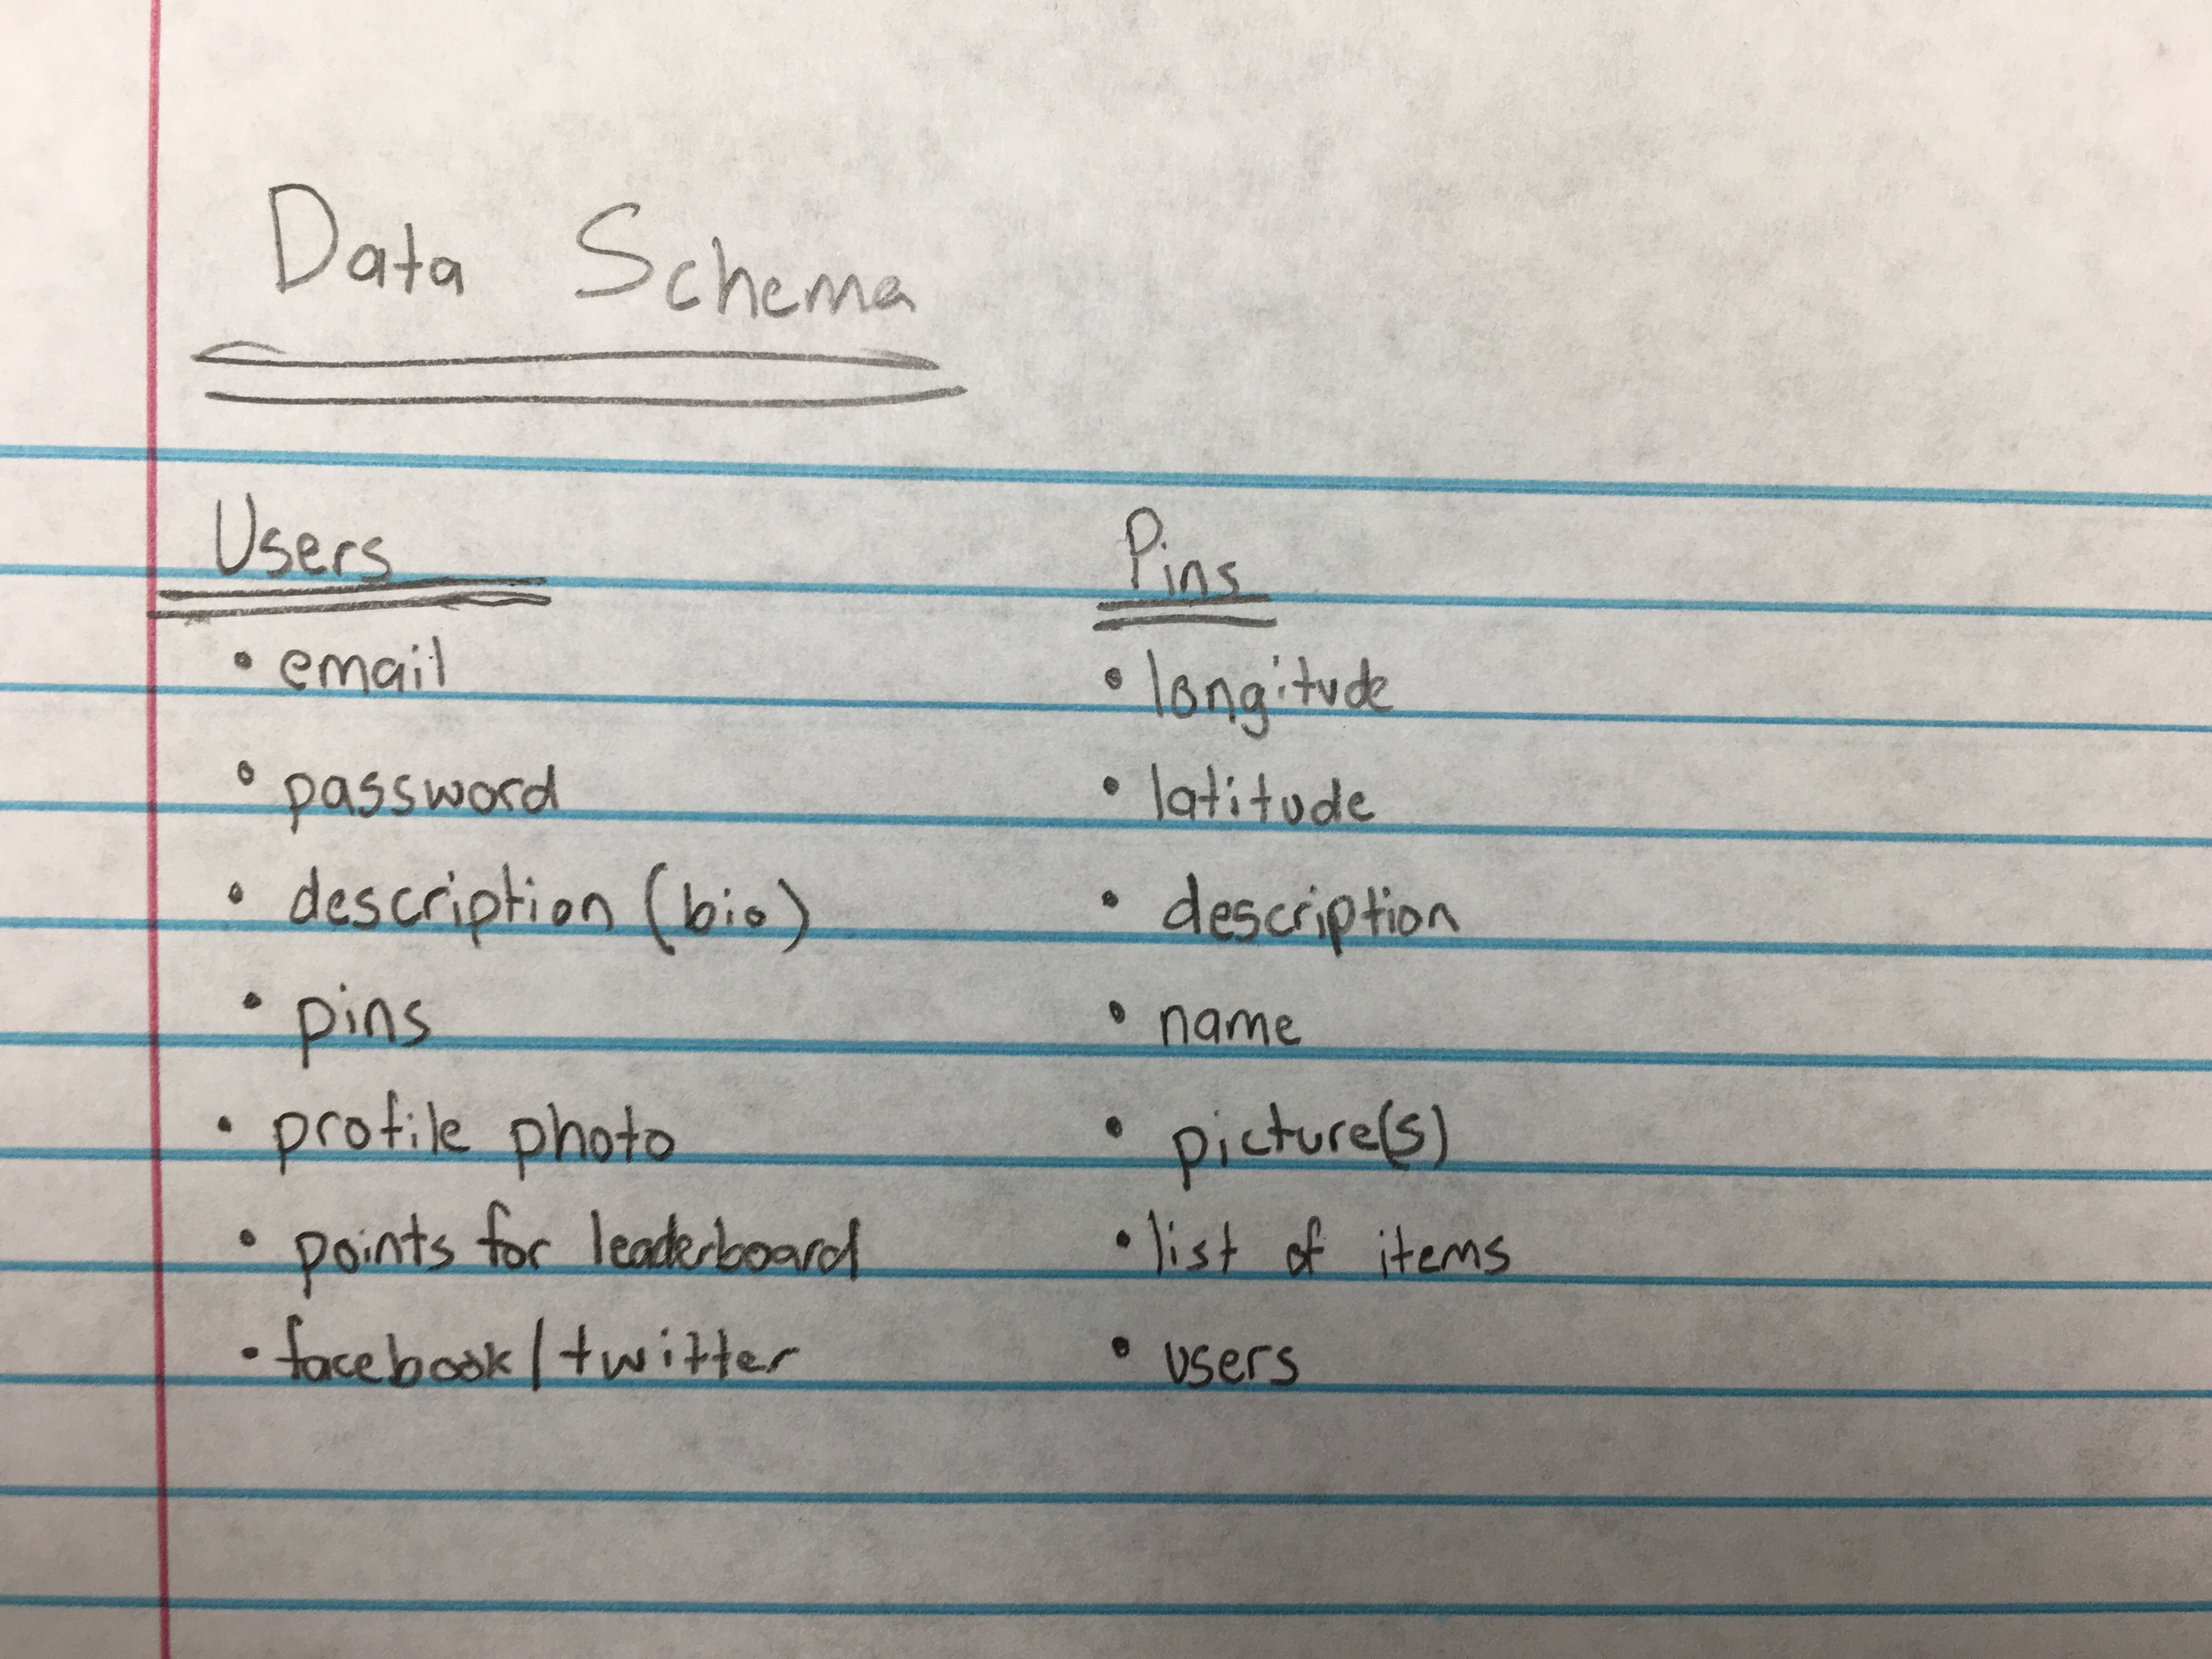 Data Schema
Users
• email
• password
• description (bio)
• pins
• profile photo
• points for leaderboard
• facebook/twitter
Pins
• longitude
• latitude
• description
• name
• picture(s)
• list of items
• users